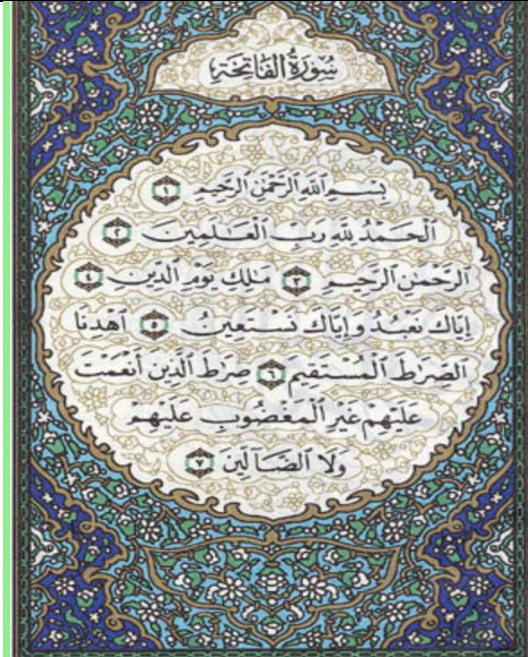 سُورَةُ الفَاتِحَةِ
بِسْمِ ٱللَّهِ ٱلرَّحْمَٰنِ ٱلرَّحِيمِ ١
ٱلْحَمْدُ لِلَّهِ رَبِّ ٱلْعَـٰلَمِينَ ٢
ٱلرَّحْمَٰنِ ٱلرَّحِيمِ ٣ مَـٰلِكِ يَوْمِ ٱلدِّينِ ٤
إِيَّاكَ نَعْبُدُ وَإِيَّاكَ نَسْتَعِينُ ٥ ٱهْدِنَا
ٱلصِّرَٰطَ ٱلْمُسْتَقِيمَ ٦ صِرَٰطَ ٱلَّذِينَ أَنْعَمْتَ
عَلَيْهِمْ غَيْرِ ٱلْمَغْضُوبِ عَلَيْهِمْ
وَلَا ٱلضَّآلِّينَ ٧